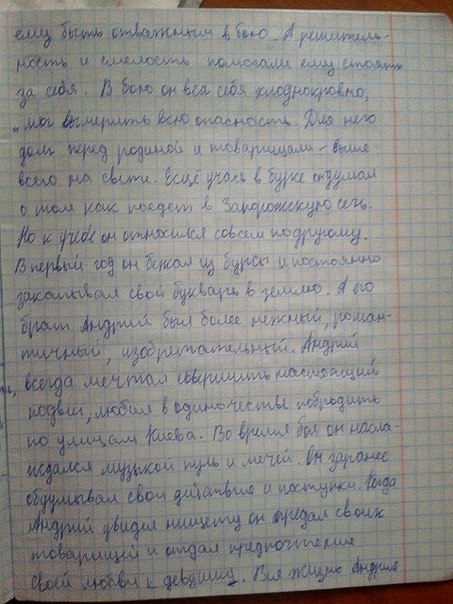 ему быть отважным в бою. А решитель-
ность и смелость помогали ему стоять
за себя. В бою он вёл себя хлоднокровно,
мог вымерить всю опасность. Для него
долг перед родиной и товарищами - выше
всего на свете. Ещё учась в бурсе он думал
о том как поедет в Запорожскую сечь.
Но к учёбе он относился совсем подругому.
В первый год он бежал из бурсы и постоянно
закапывал свой букварь в землю. А его
брат Андрий был более нежный, роман-
тичный, изобретательный. Андрий
всегда мечтал совершить настоящий
подвиг, любил в одиночестве побродить
по улицам Киева. Во время боя он насла-
ждался музыкой пуль и мечей. Он заранее
обдумывал свои действия и поступки. Когда
Андрий увидел нищету он предал своих
товарищей и отдал предпочтение
своей любви к девушке. Вся жизнь Андрия